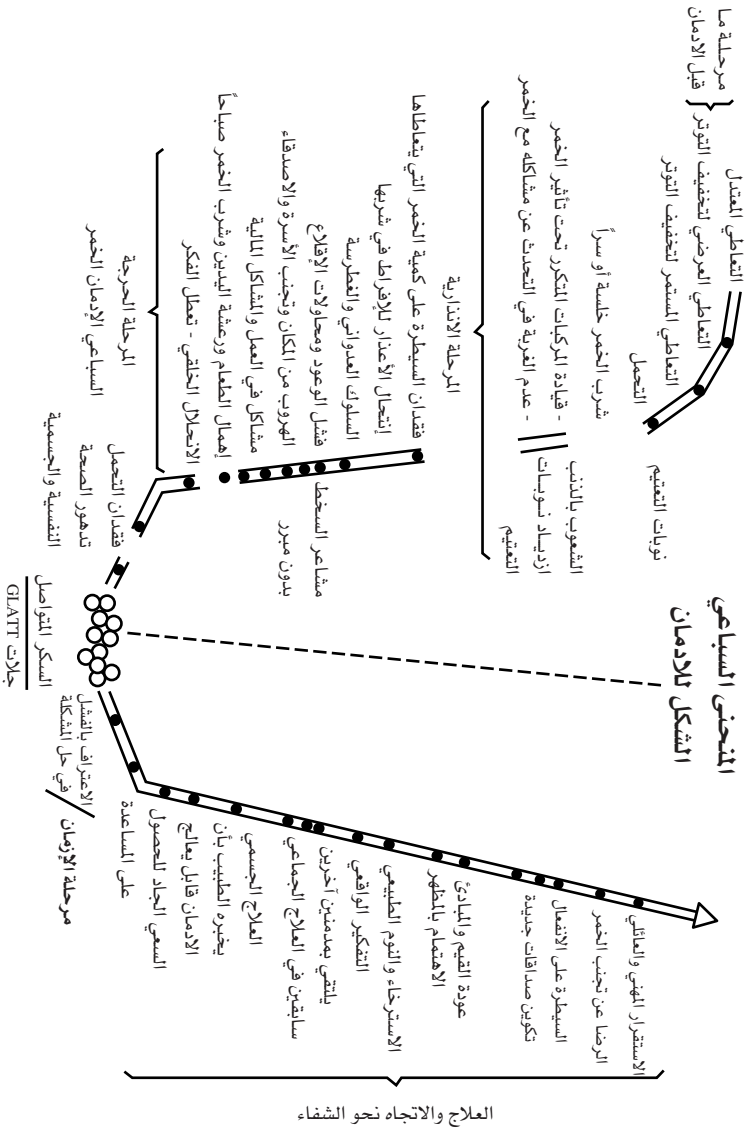 المنحنى السباعي
الشكل للادمان
مرحلة ما
قبل الادمان
التعاطي المعتدل
التعاطي العرضي لتخفيف التوتر
التعاطي المستمر لتخفيف التوتر
التحمل
نوبات التعتيم
شرب الخمر خلسة أو سراً
الشعوب بالذنب
- قيادة المركبات المتكرر تحت تأثير الخمر
ازديـاد نـوبـات
التعتيم
- عدم الغربة في التحدث عن مشاكله مع الخمر
المرحلة الانذارية
فقدان السيطرة على كمية الخمر التي يتعاطاها
إنتحال الأعذار للإفراط في شربها
السلوك العدواني والغطرسة
فشل الوعود ومحاولات الإقلاع
مشاعر السخط
بدون مبرر
الهروب من المكان وتجنب الأسرة والاصدقاء
مشاكل في العمل والمشاكل المالية
إهمال الطعام ورعشة اليدين وشرب الخمر صباحاً
الانحلال الخلقي - تعطل الفكر
المرحلة الحرجة
السباعي الإدمان الخمر
فقدان التحمل
تدهور الصحة
النفسية والجسمية
السكر المتواصل
جلات GLATT
الاعتراف بالفشل
في حل المشكلة
مرحلة الإزمان
السعي الجاد للحصول
على المساعدة
يخبره الطبيب بأن
الادمان قابل يعالج
العلاج الجسمي
يلتقي بمدمنين آخرين
سابقين في العلاج الجماعي
التفكير الواقعي
الاسترخاء والنوم الطبيعي
الاهتمام بالمظهر
عودة القيم والمبادئ
تكوين صداقات جديدة
السيطرة على الانفعال
الرضا عن تجنب الخمر
الاستقرار المهني والعائلي
العلاج والاتجاه نحو الشفاء